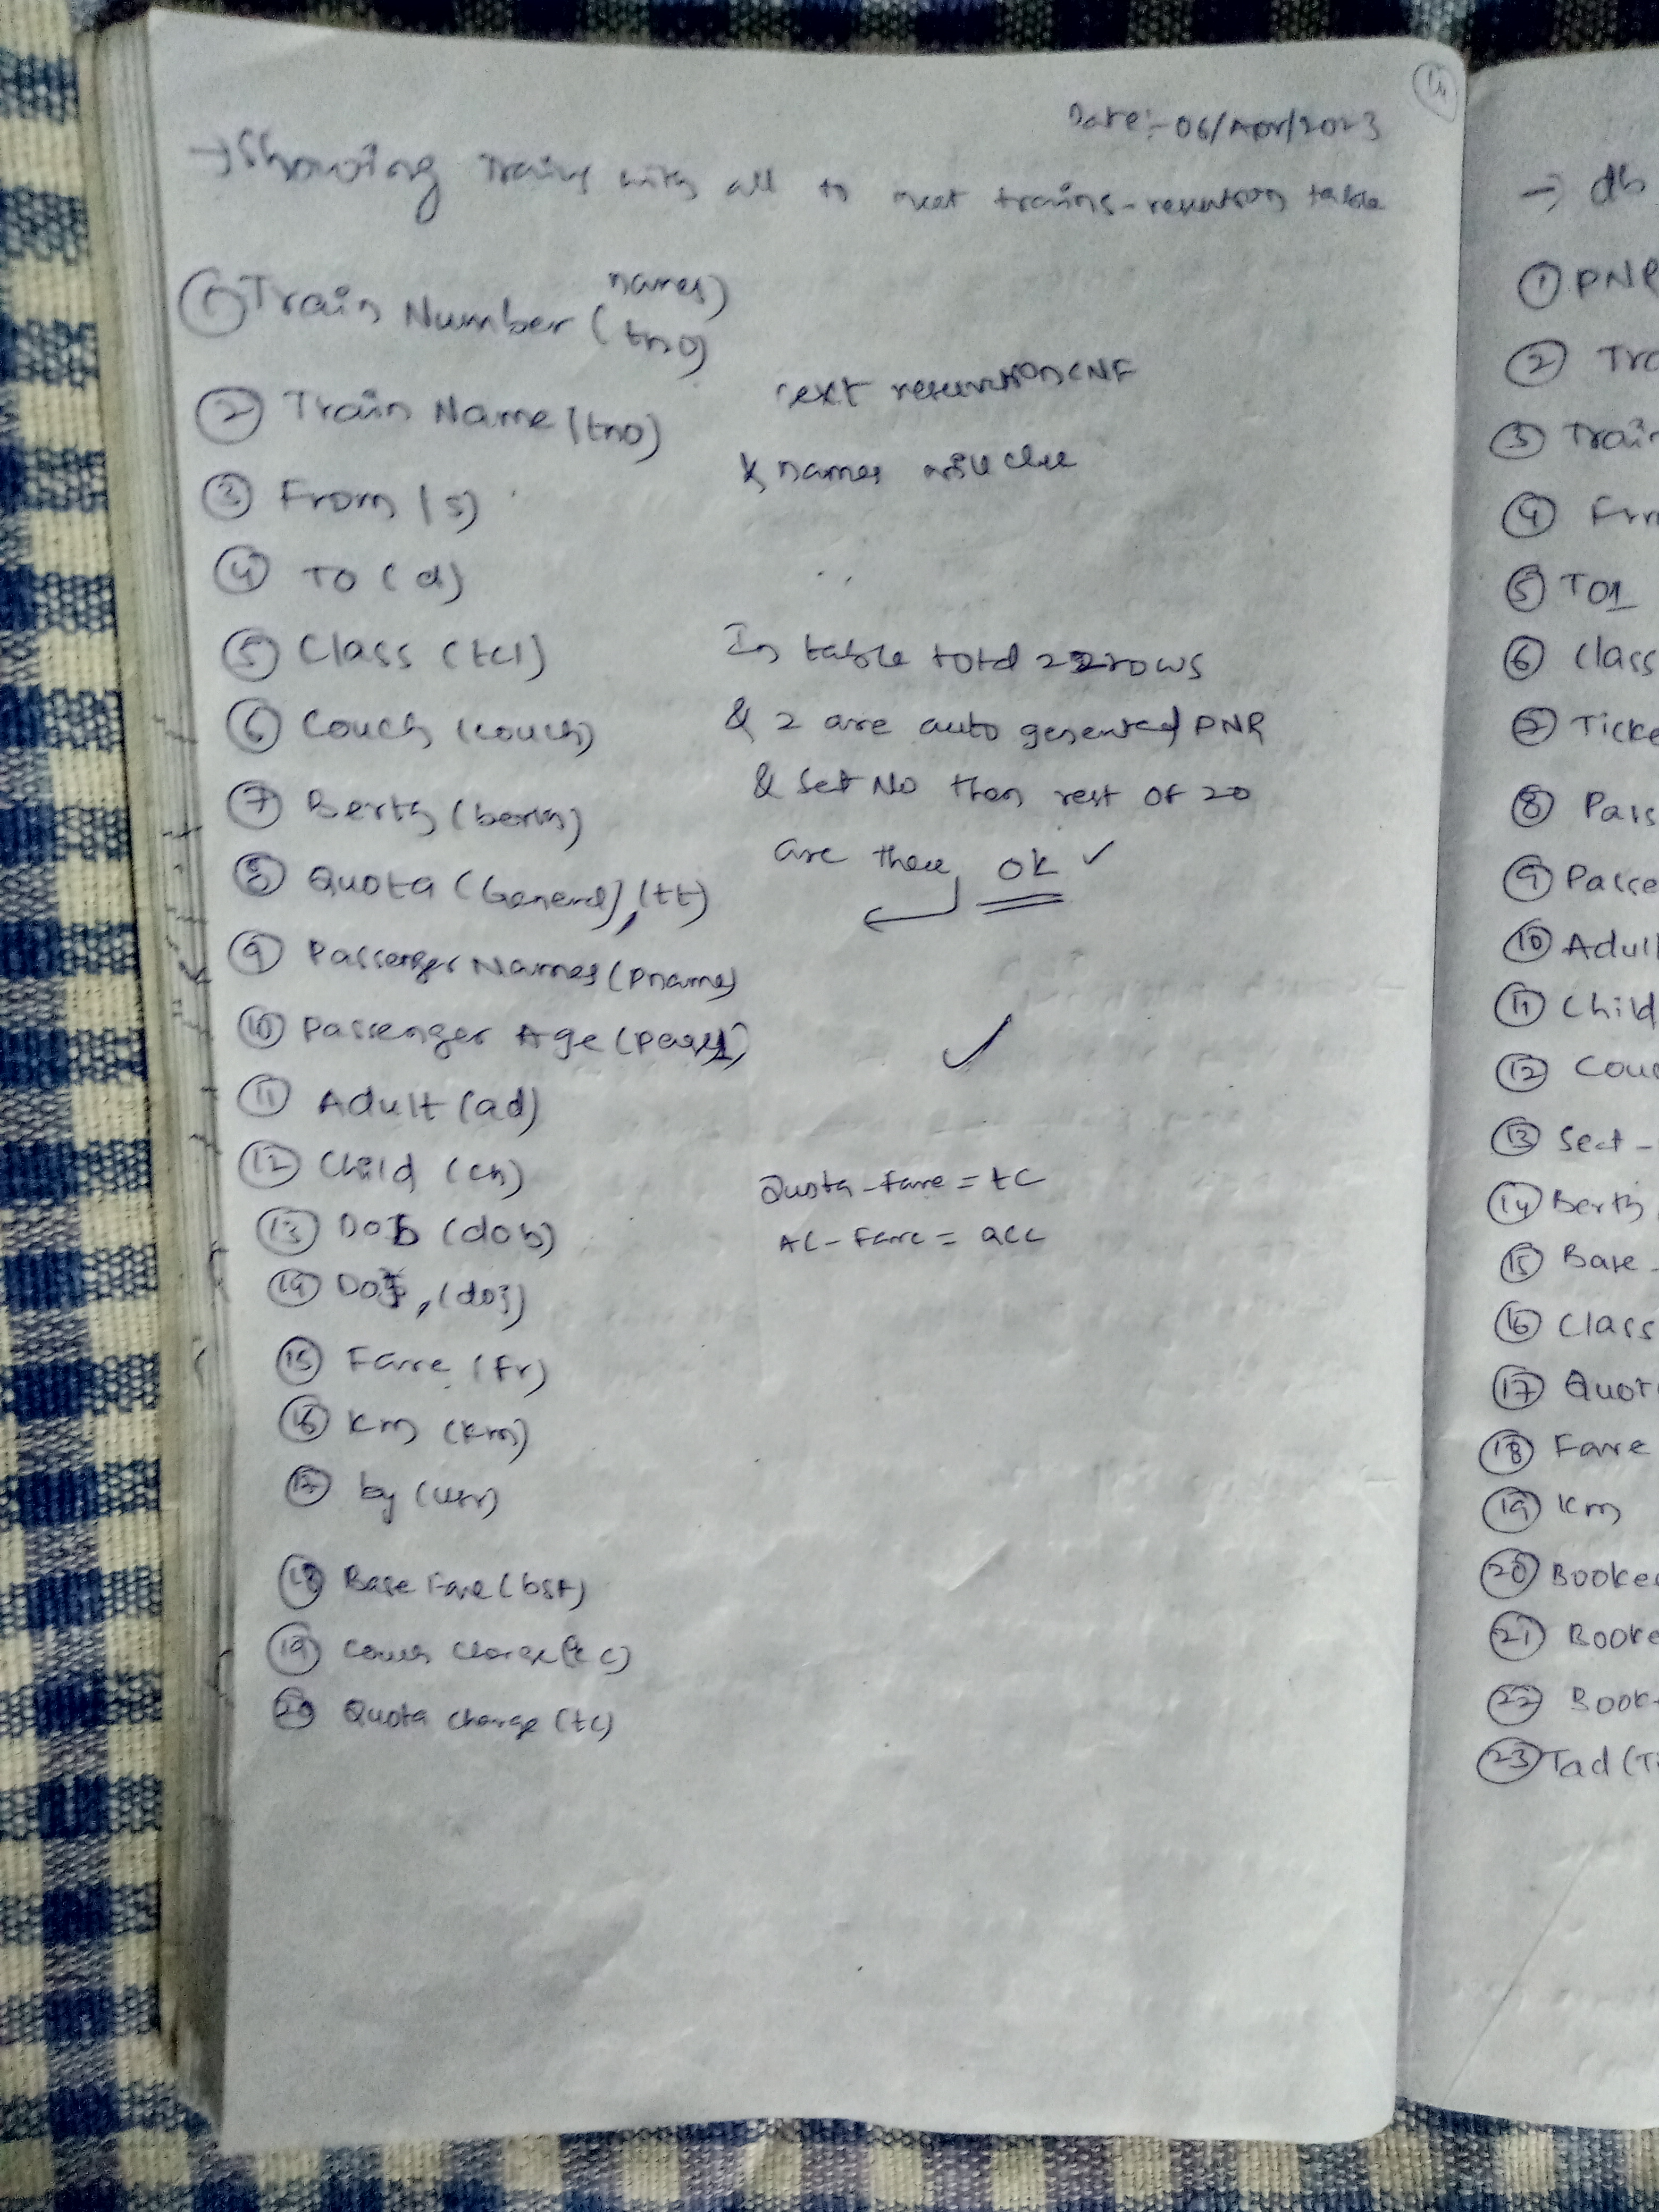 Date:- 06/Apr/2023
→ Showing Trains with all to meet trains-reservation table
① Train Number (tno)
names)
② Train Name (tno)
Text reservation CNF
& names will
③ From (s)
④ TO (d)
⑤ Class (tcl)
⑥ Couch (couch)
⑦ Berth (berth)
⑧ Quota (General), (tt)
⑨ Passenger Names (pname)
⑩ Passenger Age (page)
⑪ Adult (ad)
⑫ Child (ch)
⑬ DOB (dob)
⑭ DOJ, (doj)
⑮ Fare (fr)
⑯ Km (Km)
⑰ by (usr)
⑱ Base Fare (bsf)
⑲ Couch Charge (cc)
⑳ Quota Charge (tc)
In table total 22 rows
& 2 are auto generated PNR
& Set No then rest of 20
are there ok ✓
✓
Quota-fare = tc
AC-Fare = acc
→ db
① PNR
② Tra
③ Train
④ Fr
⑤ TO1
⑥ Class
⑦ Ticke
⑧ Pass
⑨ Passe
⑩ Adult
⑪ Child
⑫ Couc
⑬ Seat-
⑭ Berth
⑮ Base-
⑯ Class
⑰ Quot
⑱ Fare
⑲ Km
⑳ Booke
㉑ Booke
㉒ Book
㉓ Tad (T